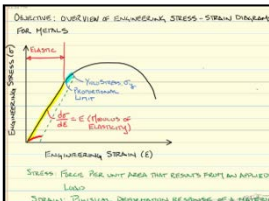 OBJECTIVE: OVERVIEW OF ENGINEERING STRESS-STRAIN DIAGRAMS
FOR METALS
ELASTIC
ENGINEERING STRESS (σ)
YIELD STRESS, σy
PROPORTIONAL
LIMIT
dσ/dε = E (MODULUS OF
ELASTICITY)
ENGINEERING STRAIN (ε)
STRESS: FORCE PER UNIT AREA THAT RESULTS FROM AN APPLIED
LOAD
STRAIN: PHYSICAL DEFORMATION RESPONSE OF A MATERIAL